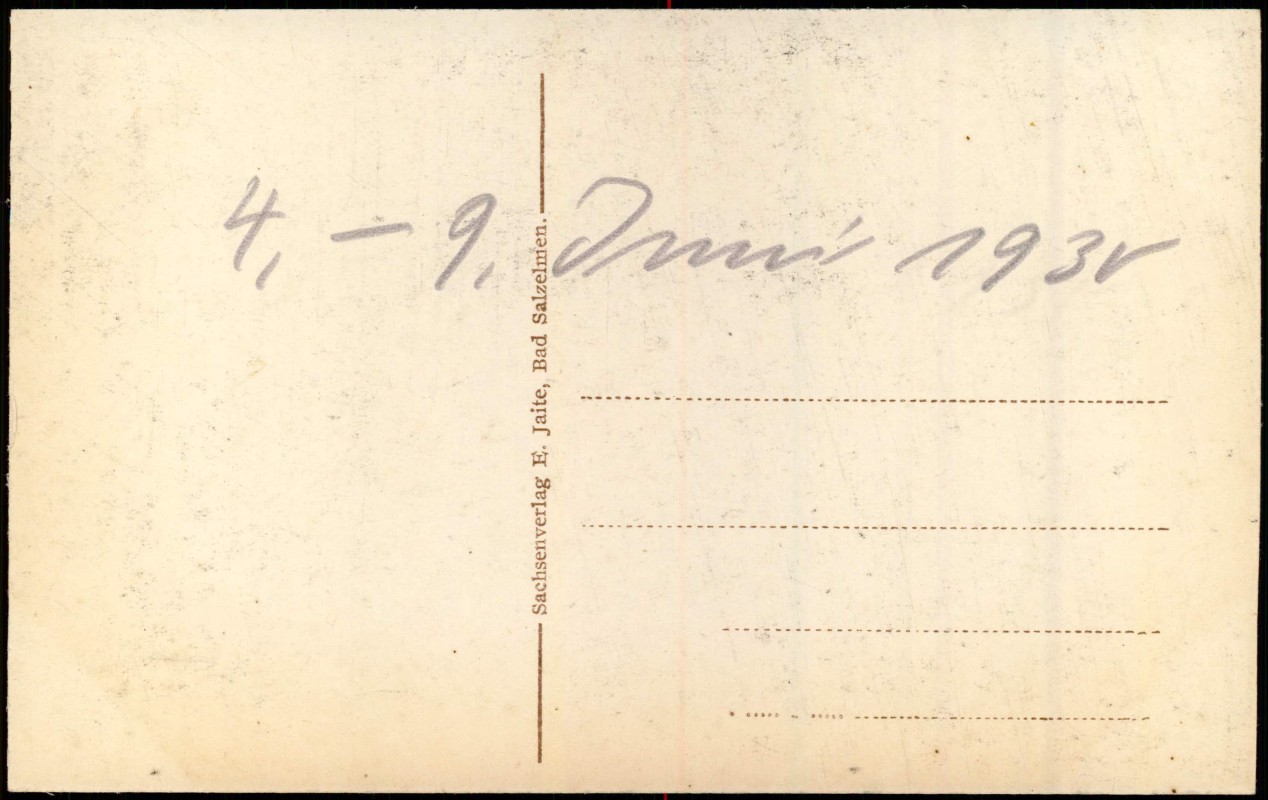 4. – 9. Juni
Sachsenverlag E. Jaite, Bad Salzelmen.